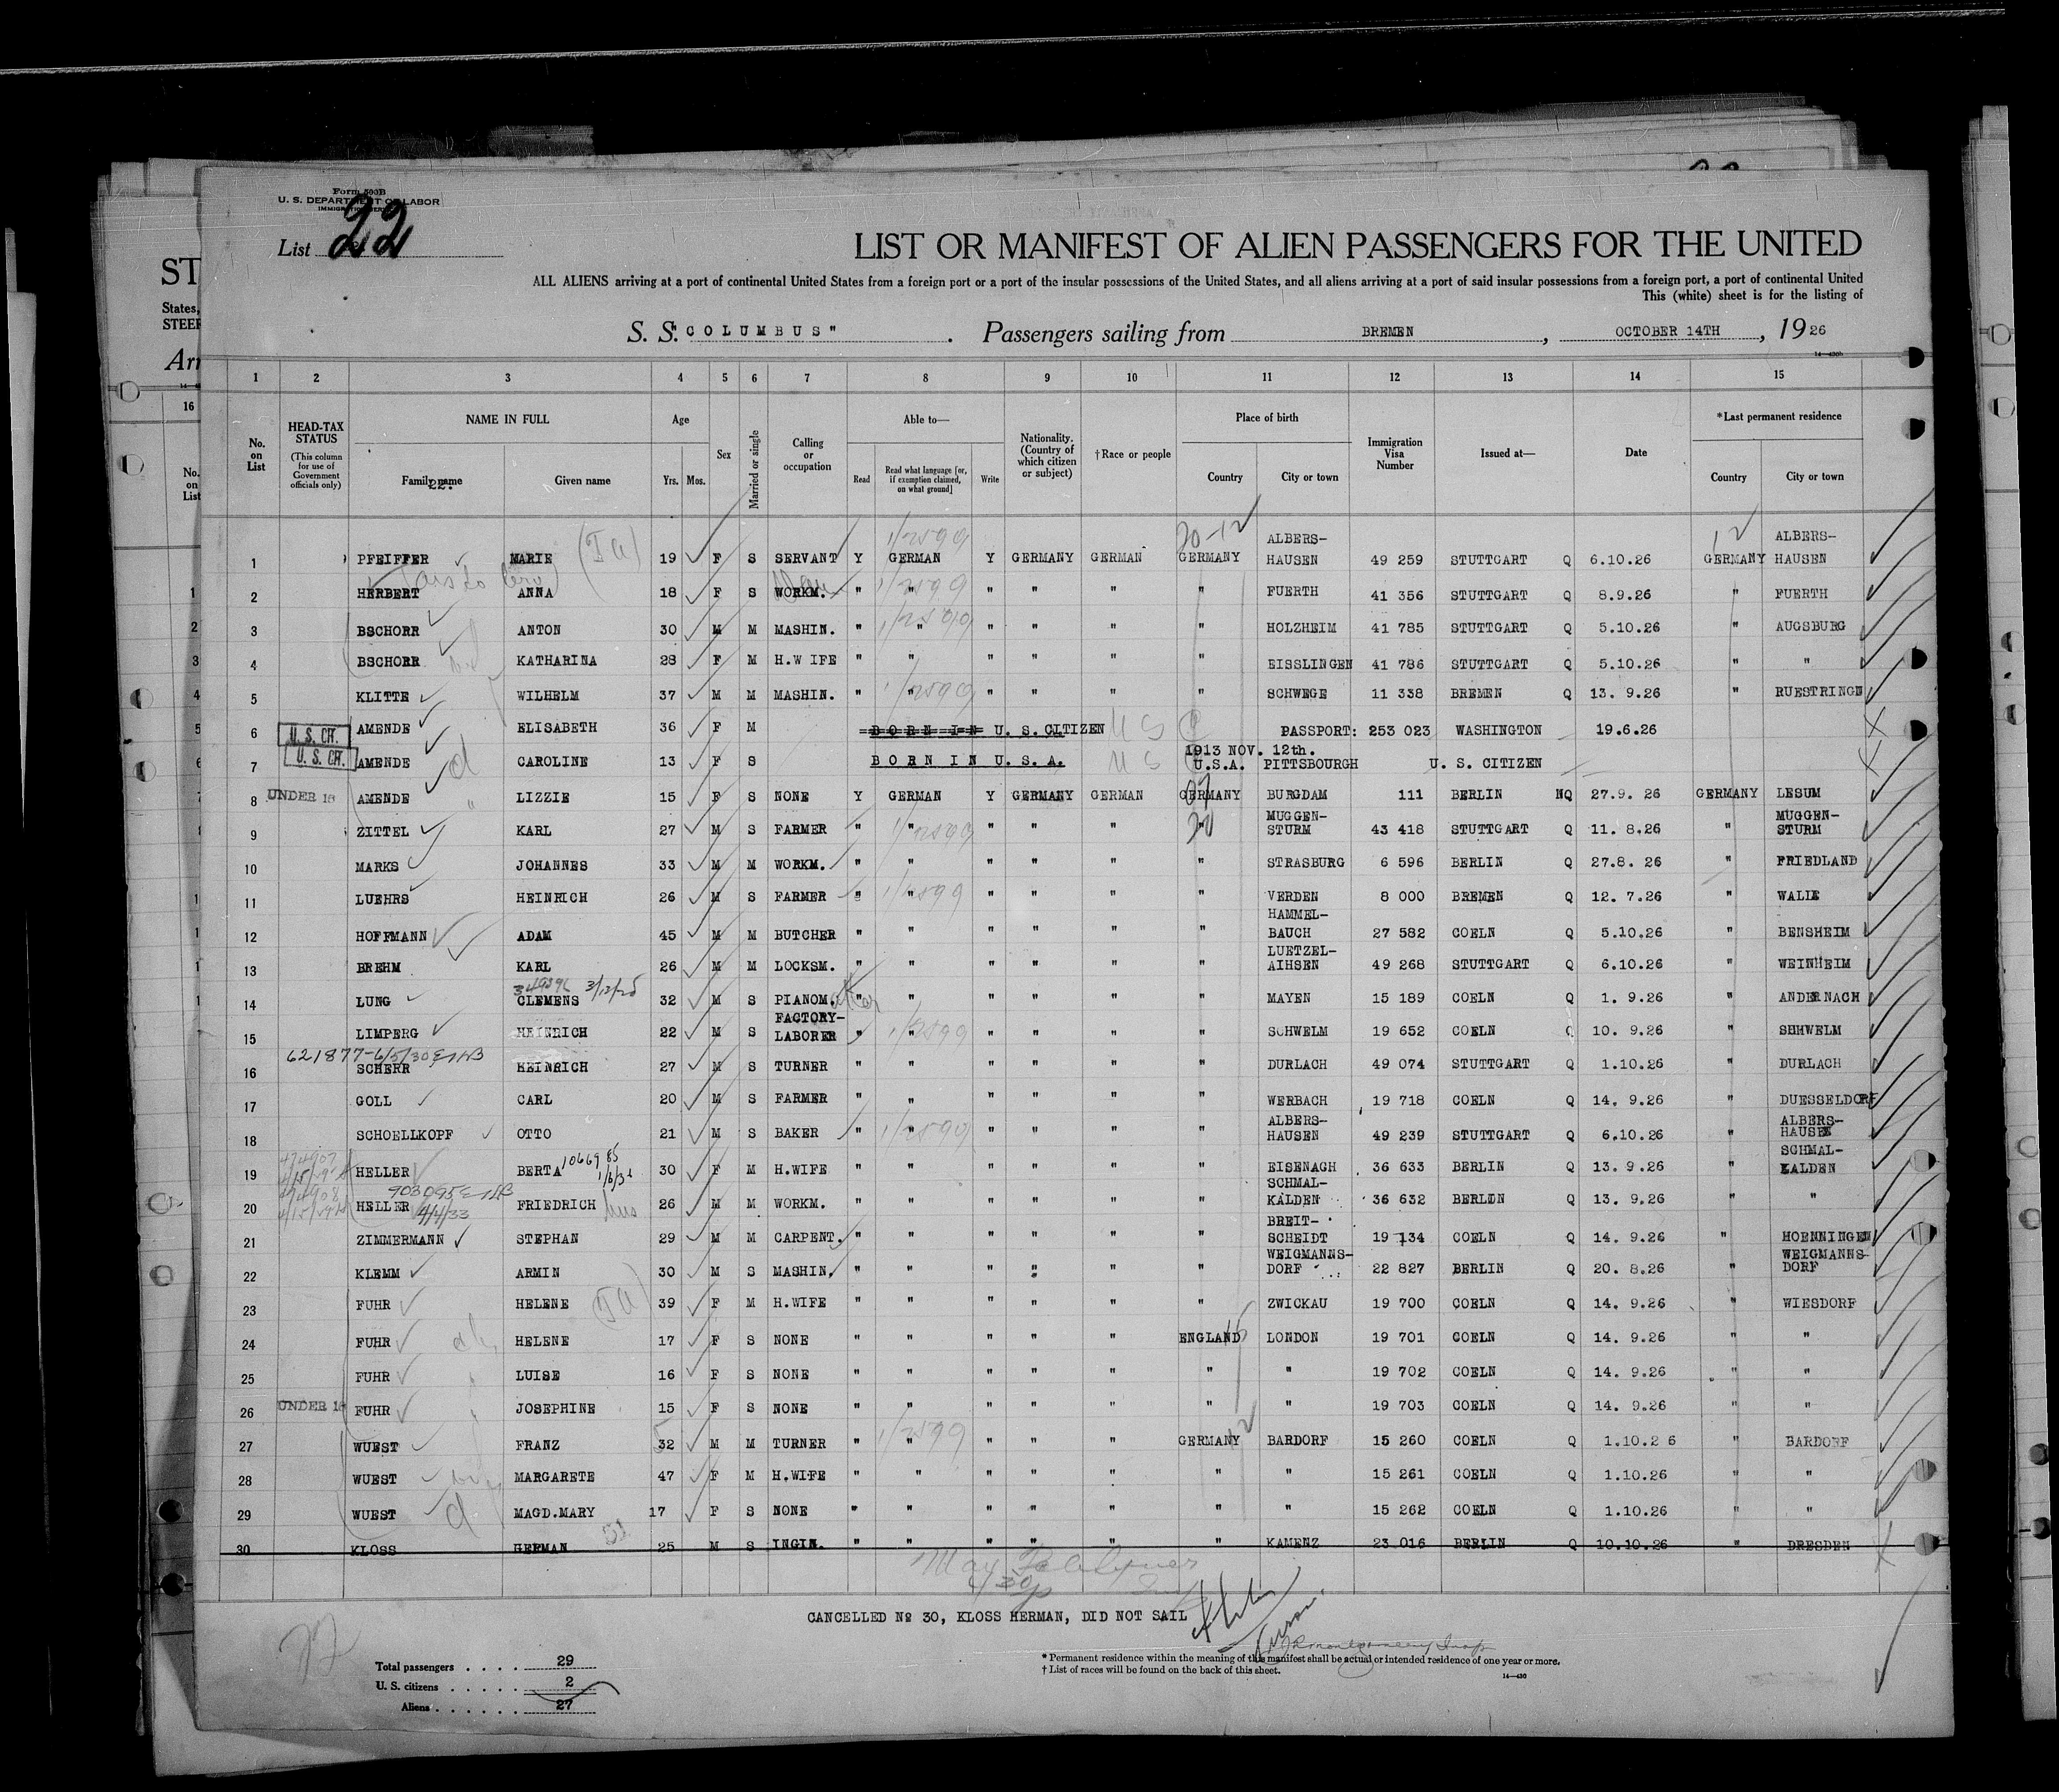 Form 500B
U. S. DEPARTMENT OF LABOR
List 22
LIST OR MANIFEST OF ALIEN PASSENGERS FOR THE UNITED
ALL ALIENS arriving at a port of continental United States from a foreign port or a port of the insular possessions of the United States, and all aliens arriving at a port of said insular possessions from a foreign port, a port of continental United
This (white) sheet is for the listing of
S. S. "COLUMBUS" . Passengers sailing from BREMEN , OCTOBER 14TH , 1926
1 2 3 4 5 6 7 8 9 10 11 12 13 14 15
No. on List HEAD-TAX STATUS (This column for use of Government officials only) NAME IN FULL Family name Given name Age Yrs. Mos. Sex Married or single Calling or occupation Able to— Read Read what language [or, if exemption claimed, on what ground] Write Nationality. (Country of which citizen or subject) †Race or people Place of birth Country City or town Immigration Visa Number Issued at— Date *Last permanent residence Country City or town
1 PFEIFFER MARIE 19 F S SERVANT Y GERMAN Y GERMANY GERMAN GERMANY ALBERS-HAUSEN 49 259 STUTTGART Q 6.10.26 GERMANY ALBERS-HAUSEN
2 HERBERT ANNA 18 F S WORKM. " " " " " " FUERTH 41 356 STUTTGART Q 8.9.26 " FUERTH
3 BSCHORR ANTON 30 M M MASHIN. " " " " " " HOLZHEIM 41 785 STUTTGART Q 5.10.26 " AUGSBURG
4 BSCHORR KATHARINA 28 F M H.WIFE " " " " " " EISSLINGEN 41 786 STUTTGART Q 5.10.26 " "
5 KLITTE WILHELM 37 M M MASHIN. " " " " " " SCHWEGE 11 338 BREMEN Q 13. 9.26 " RUESTRINGN
6 U. S. CIT. AMENDE ELISABETH 36 F M BORN IN U. S. CITIZEN U S PASSPORT: 253 023 WASHINGTON 19.6.26
7 U. S. CIT. AMENDE CAROLINE 13 F S BORN IN U. S. A. U S 1913 NOV. 12th. U.S.A. PITTSBOURGH U. S. CITIZEN
8 UNDER 16 AMENDE LIZZIE 15 F S NONE Y GERMAN Y GERMANY GERMAN GERMANY BURGDAM 111 BERLIN NQ 27.9. 26 GERMANY LESUM
9 ZITTEL KARL 27 M S FARMER " " " " " " MUGGEN-STURM 43 418 STUTTGART Q 11. 8.26 " MUGGEN-STURM
10 MARKS JOHANNES 33 M M WORKM. " " " " " " STRASBURG 6 596 BERLIN Q 27.8. 26 " FRIEDLAND
11 LUEHRS HEINRICH 26 M S FARMER " " " " " " VERDEN 8 000 BREMEN Q 12. 7.26 " WALLE
12 HOFFMANN ADAM 45 M M BUTCHER " " " " " " HAMMEL-BAUCH 27 582 COELN Q 5.10.26 " BENSHEIM
13 BREHM KARL 26 M M LOCKSM. " " " " " " LUETZEL-AIHSEN 49 268 STUTTGART Q 6.10.26 " WEINHEIM
14 LUNG CLEMENS 32 M S PIANOM. " " " " " " MAYEN 15 189 COELN Q 1. 9.26 " ANDERNACH
15 LIMPERG HEINRICH 22 M S FACTORY-LABORER " " " " " " SCHWELM 19 652 COELN Q 10. 9.26 " SHHWELM
16 SCHERR HEINRICH 27 M S TURNER " " " " " " DURLACH 49 074 STUTTGART Q 1.10.26 " DURLACH
17 GOLL CARL 20 M S FARMER " " " " " " WERBACH 19 718 COELN Q 14. 9.26 " DUESSELDORF
18 SCHOELLKOPF OTTO 21 M S BAKER " " " " " " ALBERS-HAUSEN 49 239 STUTTGART Q 6.10.26 " ALBERS-HAUSEN
19 HELLER BERTA 30 F M H.WIFE " " " " " " EISENACH 36 633 BERLIN Q 13. 9.26 " SCHMAL-KALDEN
20 HELLER FRIEDRICH 26 M M WORKM. " " " " " " SCHMAL-KALDEN 36 632 BERLIN Q 13. 9.26 " "
21 ZIMMERMANN STEPHAN 29 M M CARPENT. " " " " " " BREIT-SCHEIDT 19 134 COELN Q 14. 9.26 " HOENNINGEN
22 KLEMM ARMIN 30 M S MASHIN. " " " " " " WEIGMANNS-DORF 22 827 BERLIN Q 20. 8.26 " WEIGMANNS-DORF
23 FUHR HELENE 39 F M H.WIFE " " " " " " ZWICKAU 19 700 COELN Q 14. 9.26 " WIESDORF
24 FUHR HELENE 17 F S NONE " " " " " ENGLAND LONDON 19 701 COELN Q 14. 9.26 " "
25 FUHR LUISE 16 F S NONE " " " " " " " 19 702 COELN Q 14. 9.26 " "
26 UNDER 16 FUHR JOSEPHINE 15 F S NONE " " " " " " " 19 703 COELN Q 14. 9.26 " "
27 WUEST FRANZ 32 M M TURNER " " " " " GERMANY BARDORF 15 260 COELN Q 1.10.26 " BARDORF
28 WUEST MARGARETE 47 F M H.WIFE " " " " " " " 15 261 COELN Q 1.10.26 " "
29 WUEST MAGD.MARY 17 F S NONE " " " " " " " 15 262 COELN Q 1.10.26 " "
30 KLOSS HERMAN 25 M S INGIN. " " " " " " KAMENZ 23 016 BERLIN Q 10.10.26 " DRESDEN
CANCELLED No 30, KLOSS HERMAN, DID NOT SAIL
Total passengers . . . . 29
U. S. citizens . . . . . 2
Aliens . . . . . . 27
* Permanent residence within the meaning of this manifest shall be actual or intended residence of one year or more.
† List of races will be found on the back of this sheet.